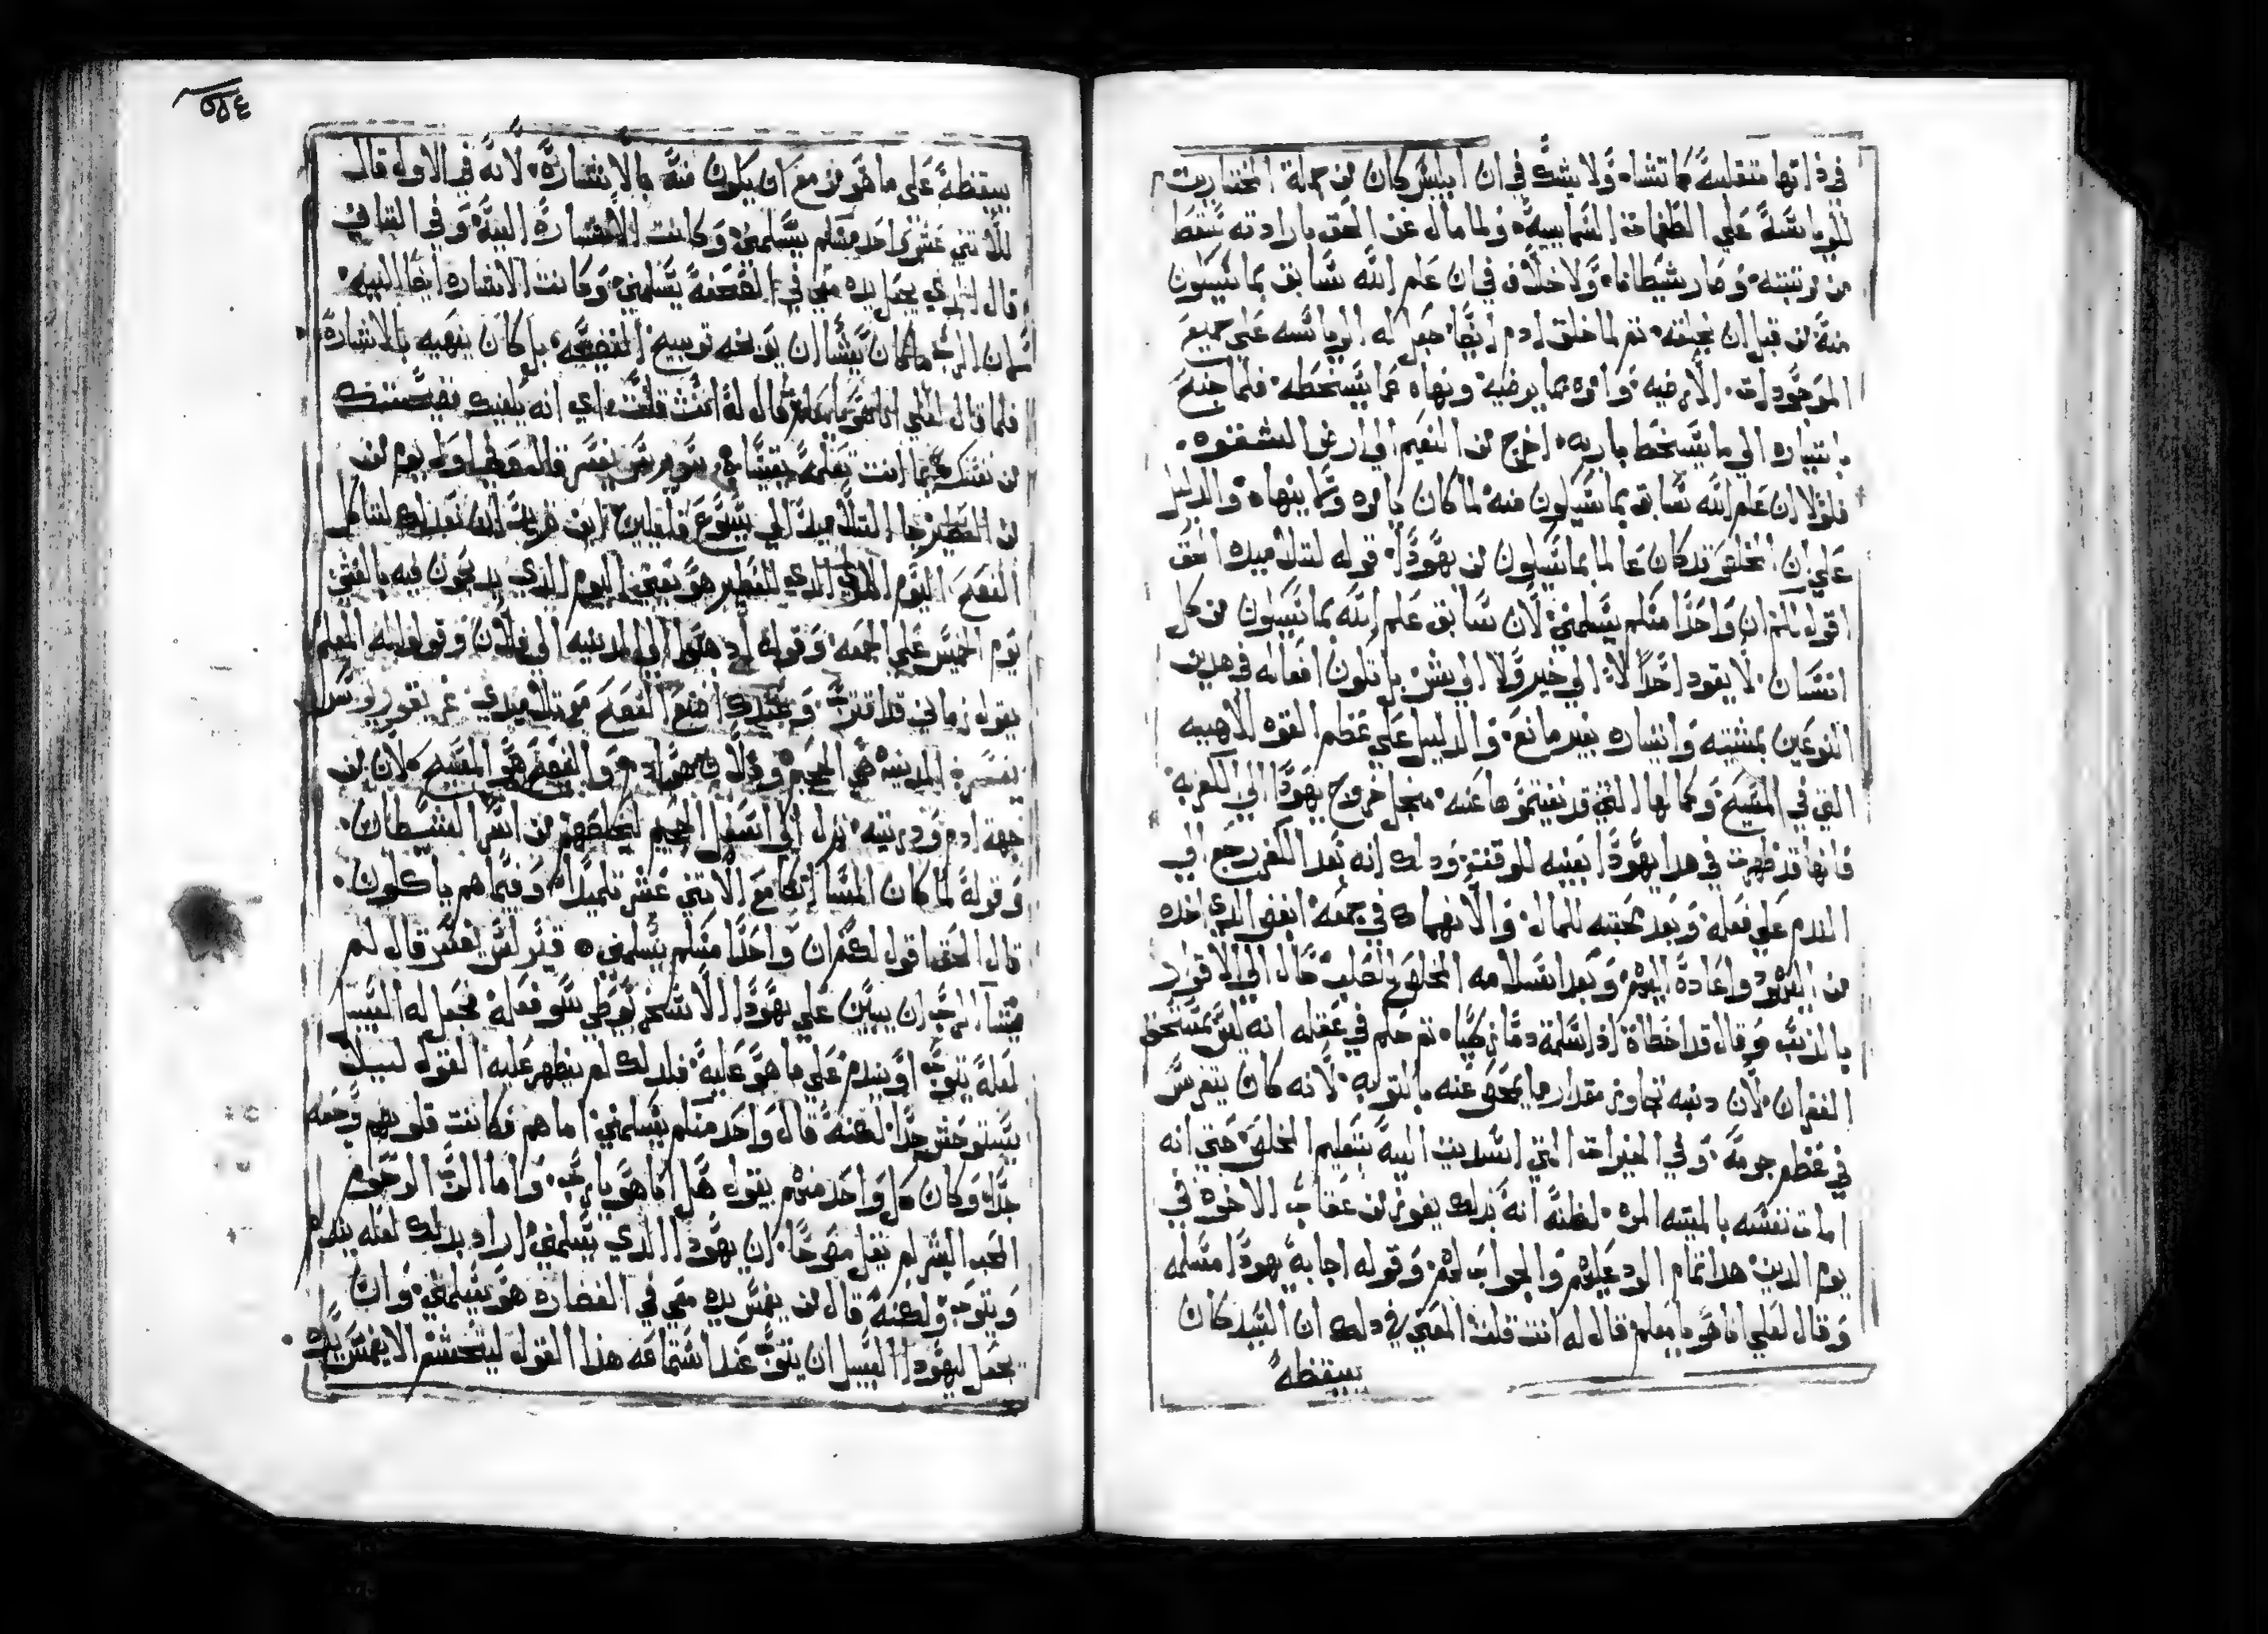 في داتها متقلبة كما تشاء ولا يشك في ان ابليس كان من جملة المختارين
للرياسة على الطغمات السماييه ولما مال عن الحق بارادته سقط
من رتبته وصار شيطانا ولا خلاف في ان علم الله سابق بما سيكون
منه من قبل ان يخلقه تم لما خلق ادم ايضا جعل له الرياسه على جميع
الموجودات الارضيه وامره بما يرضيه ونهاه عما يسخطه فلما جنح
باختياره الى ما يسخط باريه اخرج من النعيم الى ارض الشقوه
فلولا ان علم الله سابق بما سيكون منه لما كان يامره ولا ينهاه والدليل
على ان المخلص قد كان عالما بما سيكون من يهودا قوله لتلاميده الحق
اقول لكم ان واحدا منكم يسلمني لان سابق علم الله بما سيكون من كل
انسان لا يقود احدا لا الى خير ولا الى شر بل تكون افعاله في هدين
النوعين بمشيته واختياره بغير مانع والدليل على عظم القوه الالهيه
التي في المسيح وكمالها التي قد نعيتموها عنه منجل خروج يهودا الى الكفر به
فانها قد ظهرت في هدا يهودا بعينه للوقت ودلك انه بعد الكفر رجع الى
الندم على فعله وبعد محبته للمال والانهماك في جمعه ابغض الدي اخده
من اليهود واعاده اليهم وبعد اسلامه المخلص للصلب مال الى الاقرار
بالدنب وقال قد اخطات اد اسلمت دما زكيا تم حكم في عقله انه ليس يستحق
الغفران لان دنبه تجاوز مقدار ما يمحق عنه بالتوبه لانه كان يتفرس
في عظم جرمه وفي الخيرات التي اسديت اليه بتعليم المخلص حتى انه
امات نفسه بالميته المره لظنه انه بدلك يفوز من عقاب الاخره في
يوم الدين هدا تمام الرد عليهم والجواب لهم وقوله اجابه يهودا مسلمه
وقال لعلي انا هو يا معلم قال له انت قلت المعنى في دلك ان السيد كان
ييقظه
٥٥٤
ييقظه على ما هو مزمع ان يكون منه بالاشاره لانه في الاول قال
للاتني عشر واحد منكم يسلمني وكانت الاشاره اليه وفي التاني
قال الدي يجعل يده معي في القصعه يسلمني وكانت الاشاره ايضا اليه
لان الرب ما كان يشا ان يوبخه توبيخ الفضيحه بل كان ينهيه بالاشاره
فلما قال لعلي انا هو يا معلم قال له انت قلت اي انه يكفيك فضيحتك
من نفسك بما انت تعلمه يقينا يفسر قال المعظ اول يوم من
من الفطير جا التلاميد الى يسوع قايلين اين تريد ان نعد لك لتاكل
الفصح اليوم الاول الدي للفطير هو يعني اليوم الدي يدبحون فيه بالعشي
يوم الخميس على الجمعه وقوله ادهبوا الى المدينه الى فلان وقولوا له المعلم
يقول زماني قد اقترب وعندك اصنع الفصح مع تلاميدي غريغوريوس
يفسر المدينه هي الجحيم وفلان هو ادم والفصح هو المسيح لان من
جهة ادم ودريته نزل الى اسفل الجحيم ليخلصهم من اسر الشيطان
وقوله لما كان المسا اتكا مع الاتني عشر تلميدا وفيما هم ياكلون
قال الحق اقول لكم ان واحدا منكم يسلمني قيرلس يفسر قال لم
يشا الرب ان يبين على يهودا الاسخريوطي سو فعله فجعل له السبيل
لعله يتوب او يندم على ما هو عليه فلدلك لم يظهر عليه القول لييلا
يستوحش جدا لكنه قال واحد منكم يسلمني اما هم فكانت قلوبهم وجعه
جدا وكان كل واحد منهم يقول هل انا هو يارب واما الرب الرحوم
المحب البشر لم يقل مصرحا ان يهودا الدي يسلمني اراد بدلك لعله يندم
ويتوب ولكنه قال من يغمس يده معي في الغضاره هو يسلمني وان
يجعل ليهودا السبيل ان يتوب عند استماعه هدا القول ليحتشم الا يغمس يده